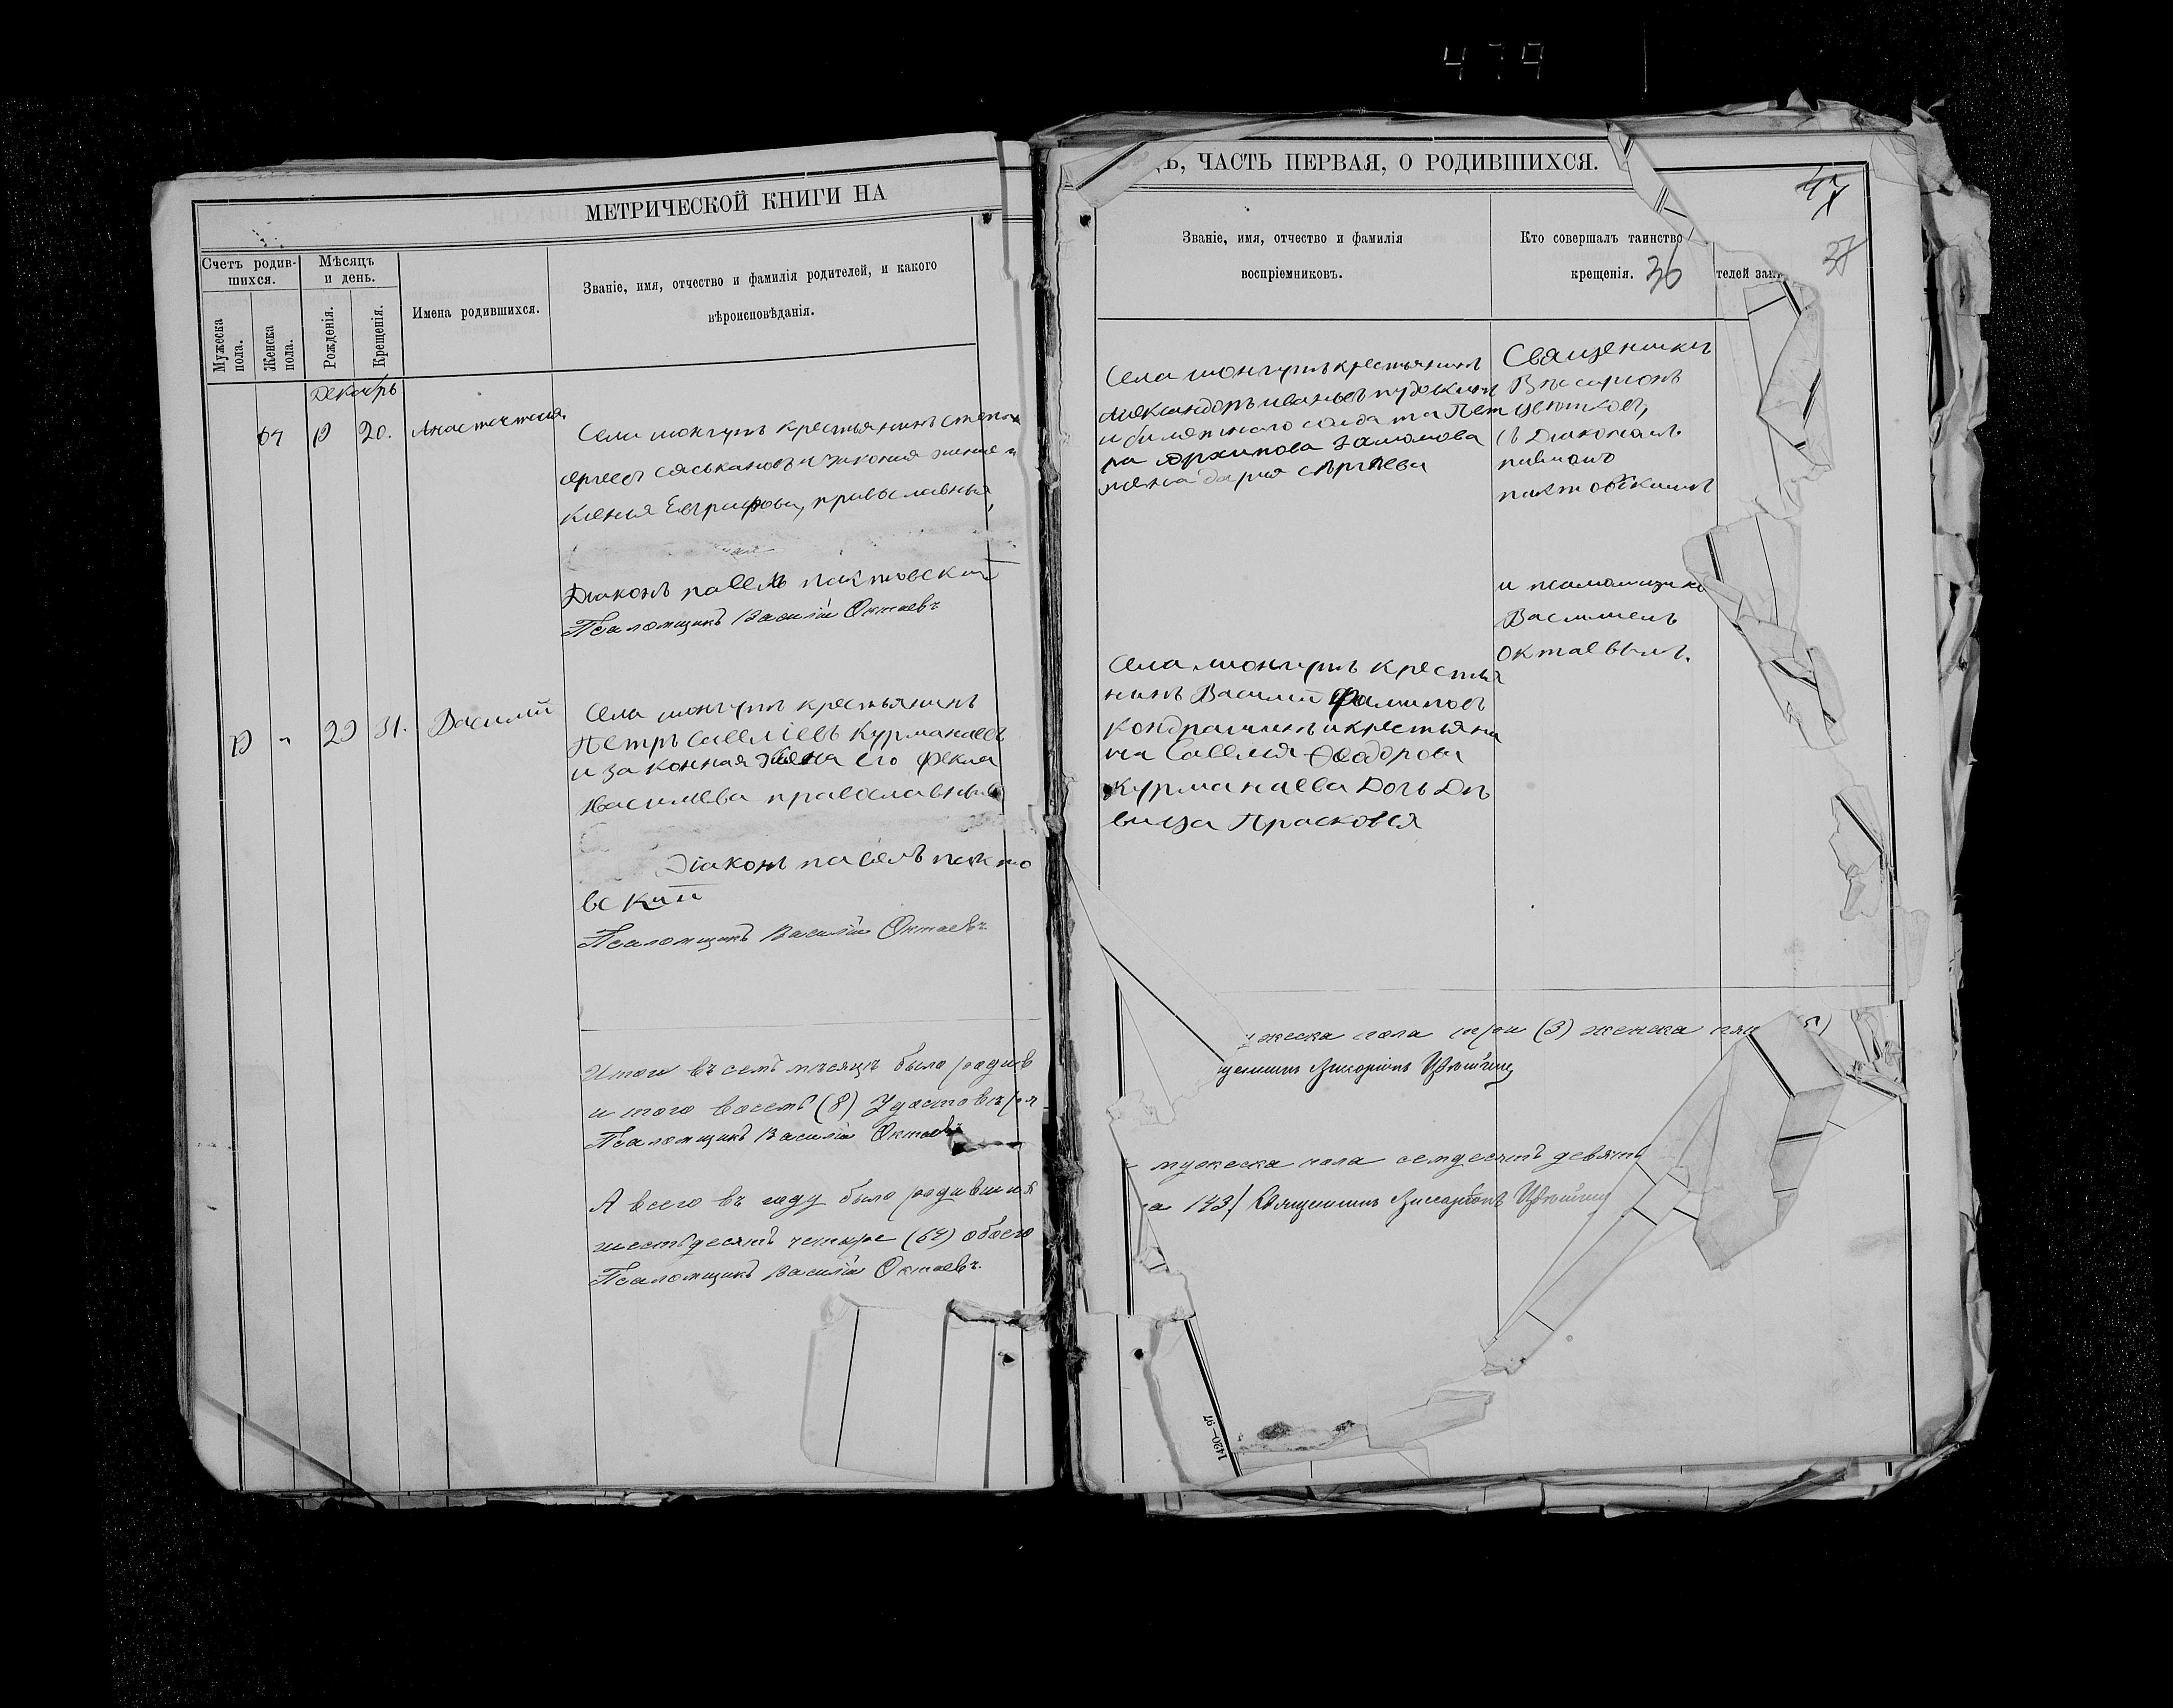 479
МЕТРИЧЕСКОЙ КНИГИ НА
Счетъ родив-
шихся.
Мѣсяцъ
и день.
Мужеска
пола.
Женска
пола.
Рожденія.
Крещенія.
Имена родившихся.
Званіе, имя, отчество и фамилія родителей, и какого
вѣроисповѣданія.
Декабрь
64
20.
Анастасія.
Села крестьянинъ Степанъ
и законная жена
Евграфова, православные
Діаконъ Павелъ Пактовскій
Псаломщикъ Василій Октаевъ
29 31.
Василій
Села крестьянинъ
Петръ Савеліевъ Курманаевъ
и законная жена его Фекла
Васильева православные
Діаконъ Павелъ Пакто
вскій
Псаломщикъ Василій Октаевъ
Итого въ семъ мѣсяцѣ было родив
итого восемь (8) Удостовѣря
Псаломщикъ Василій Октаевъ
А всего въ году было родившихся
шестьдесятъ четыре (64) обоего
Псаломщикъ Василій Октаевъ.
Ъ, ЧАСТЬ ПЕРВАЯ, О РОДИВШИХСЯ.
47
37
Званіе, имя, отчество и фамилія
воспріемниковъ.
Кто совершалъ таинство
крещенія. 36
телей зап
Села крестьянинъ
Александръ Ивановъ
Архипова
жена Дарія Сергѣева
Священникъ
Виссаріонъ
съ Діакономъ
Павломъ
Пактовскимъ
и псаломщико
Василіемъ
Октаевымъ.
Села крестья
нинъ Василій Филиповъ
Кондрашинъ и крестьяни
на Савелія Феодорова
Курманаева дочь дѣ
вица Прасковья
ужеска пола три (3) женска пят (5)
щенникъ Виссаріонъ
мужеска пола семдесятъ девять
а 143/ Священникъ Виссаріонъ
1420—97